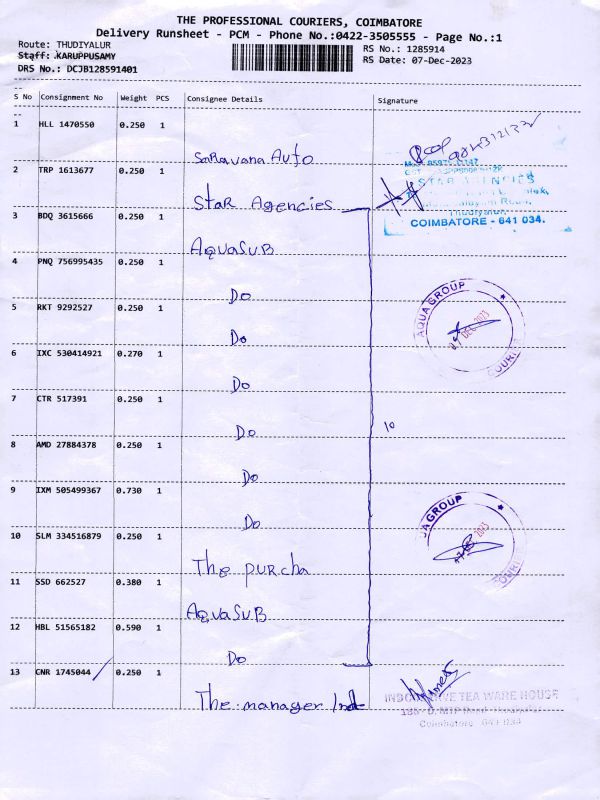 THE PROFESSIONAL COURIERS, COIMBATORE
Delivery Runsheet - PCM - Phone No.:0422-3505555 - Page No.:1
Route: THUDIYALUR
RS No.: 1285914
Staff: KARUPPUSAMY
RS Date: 07-Dec-2023
DRS No.: DCJB128591401
S No Consignment No Weight PCS Consignee Details Signature
1 HLL 1470550 0.250 1
Saravana Auto
2 TRP 1613677 0.250 1
Star Agencies
STAR AGENCIES
COIMBATORE - 641 034.
3 BDQ 3615666 0.250 1
AquaSub
4 PNQ 756995435 0.250 1
Do
5 RKT 9292527 0.250 1
Do
AQUA GROUP
DEC 2023
6 IXC 530414921 0.270 1
Do
7 CTR 517391 0.250 1
Do
10
8 AMD 27884378 0.250 1
Do
9 IXM 505499367 0.730 1
Do
10 SLM 334516879 0.250 1
The purcha
GROUP
2023
11 SSD 662527 0.380 1
AquaSub
12 HBL 51565182 0.590 1
Do
13 CNR 1745044 0.250 1
The manager Ind
TEA WARE HOUSE
Coimbatore